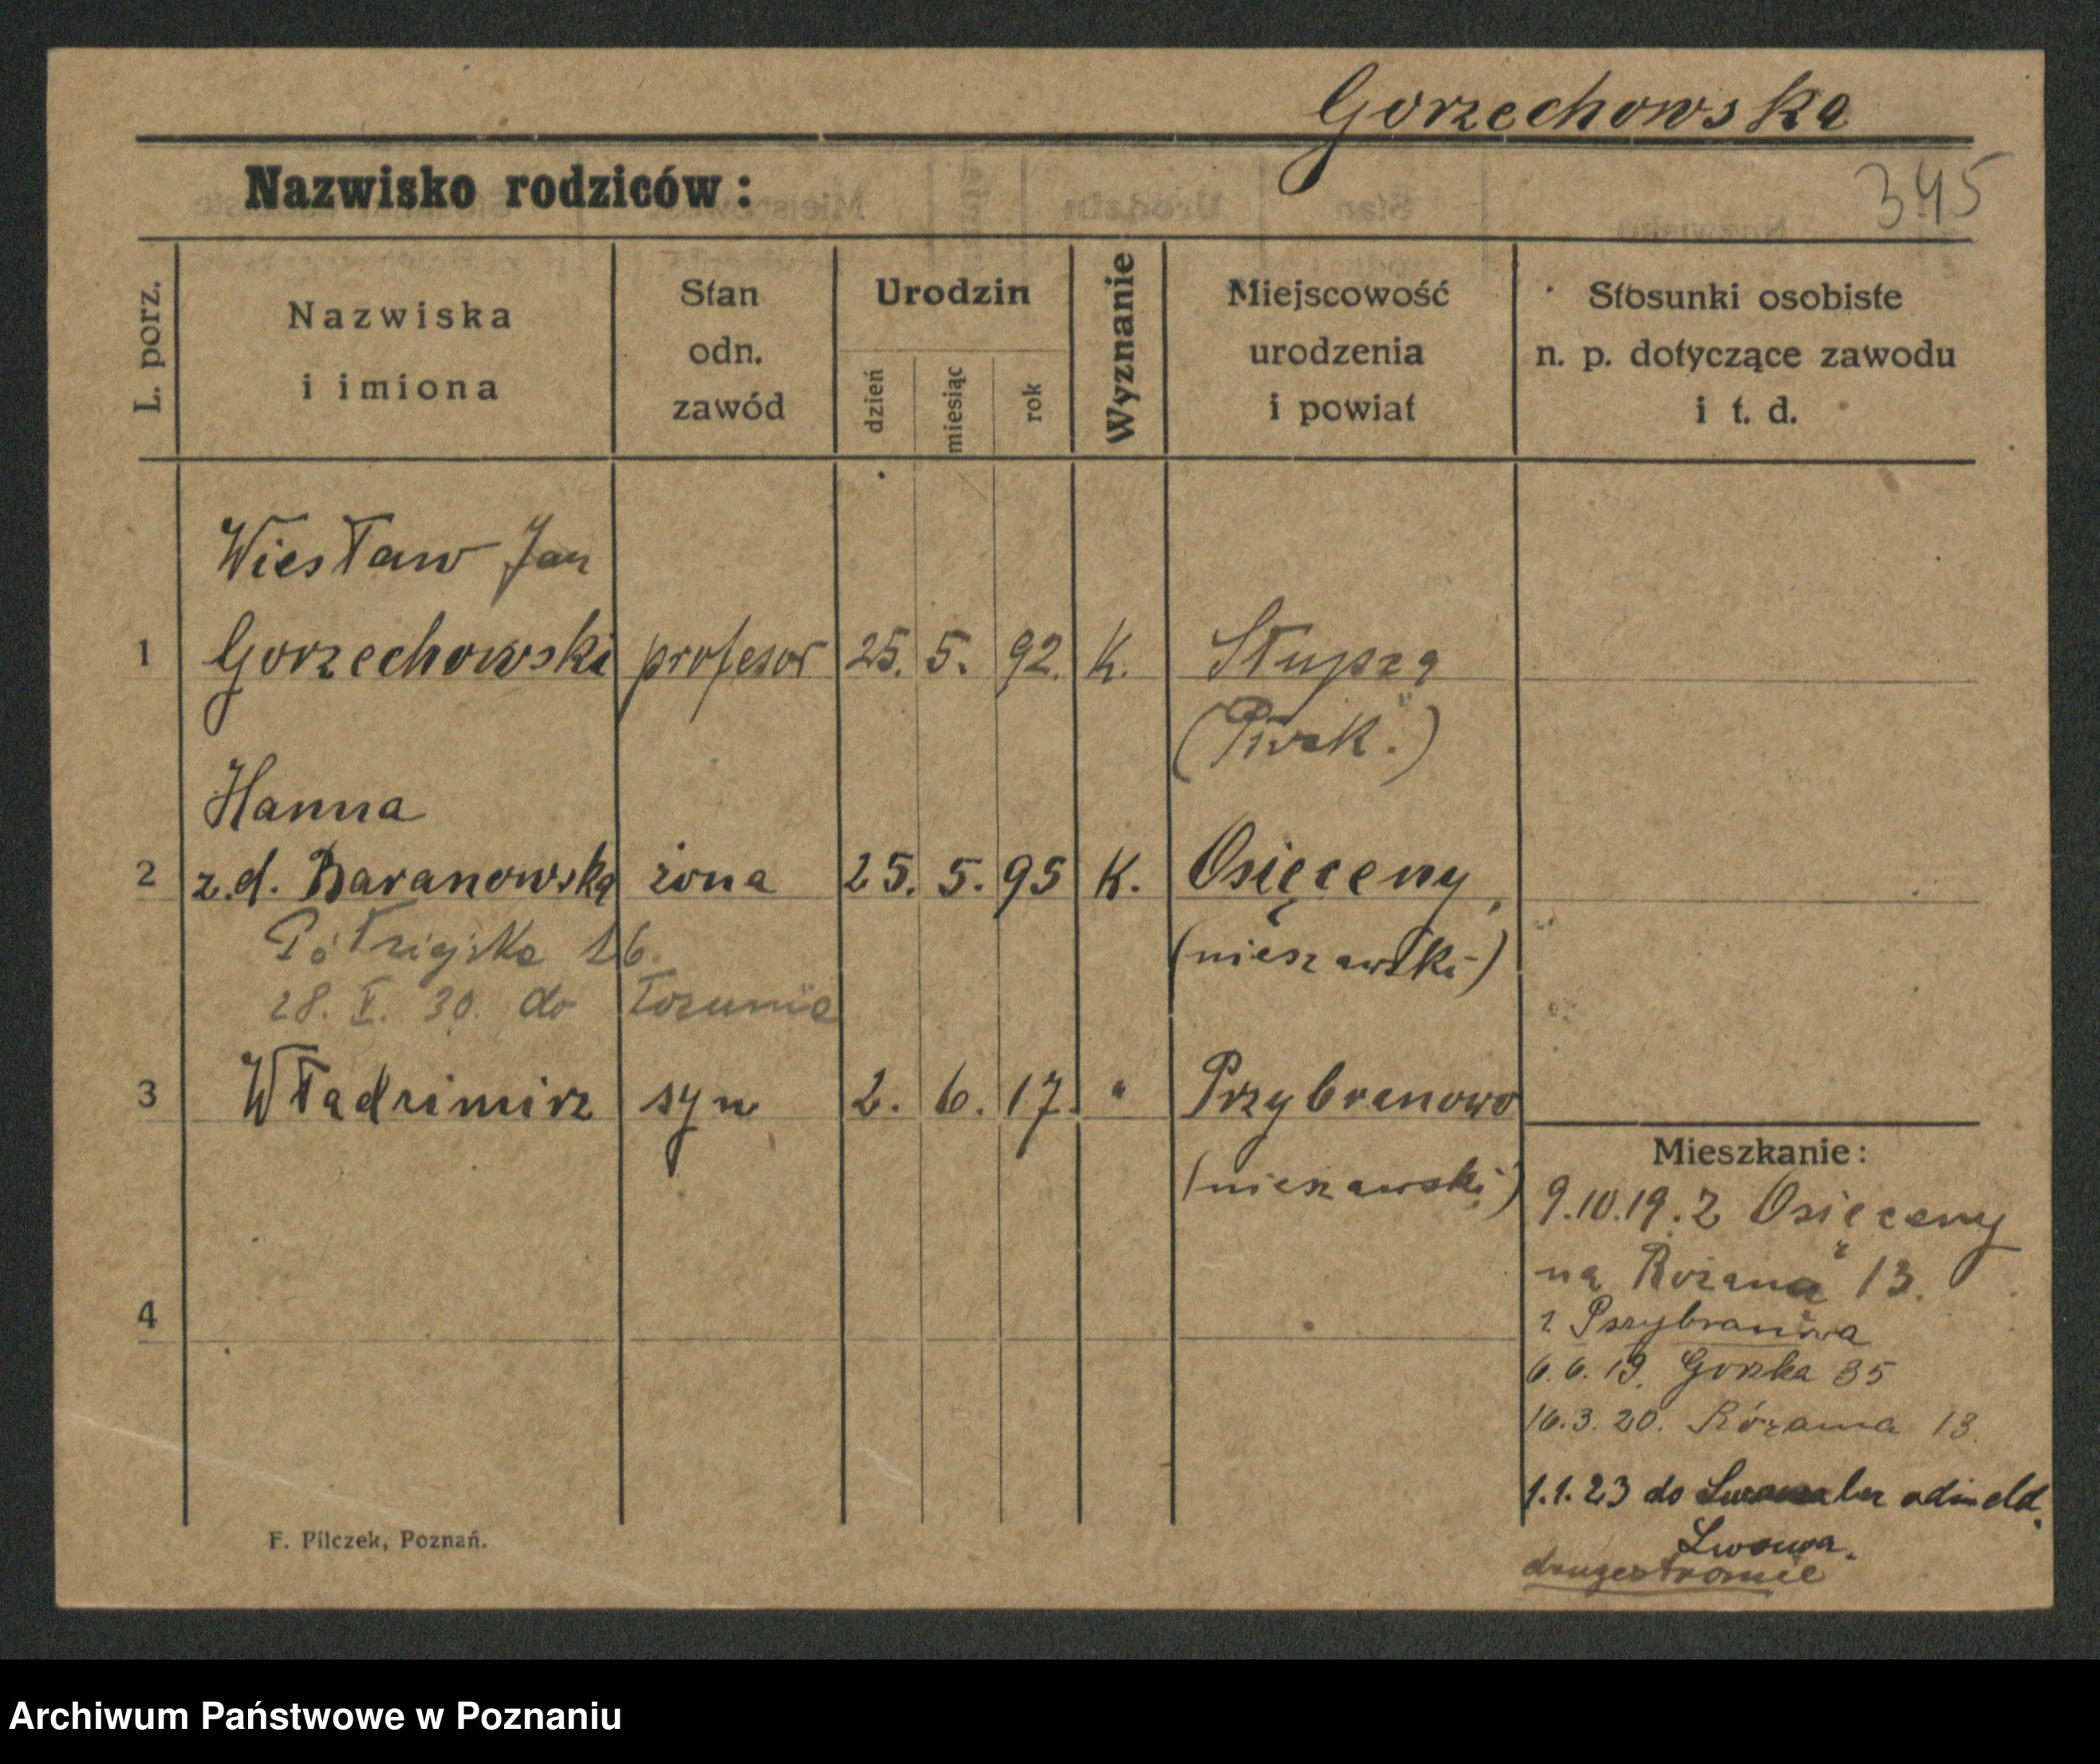 Gorzechowska
Nazwisko rodziców:
345
L. porz.
Nazwiska
i imiona
Stan
odn.
zawód
Urodzin
dzień
miesiąc
rok
Wyznanie
Miejscowość
urodzenia
i powiat
Stosunki osobiste
n. p. dotyczące zawodu
i t. d.
Wiesław Jan
1 Gorzechowski profesor 25. 5. 92. K. Słupza
Hanna
2 z.d. Baranowska żona 25. 5. 95 K. Osięceny
(nieszawski)
28. V. 30. do Torunia
3 Władzimirz syn 2. 6. 17. " Przybranowo
(nieszawski)
Mieszkanie:
9.10.19. z Osięceny
na Różana 13.
z Przybranowa
6.6.19. Gorzka 35
16.3.20. Różanna 13
4
1.1.23 do odmeld.
Lwowa.
drugestronie
F. Pilczek, Poznań.
Archiwum Państwowe w Poznaniu